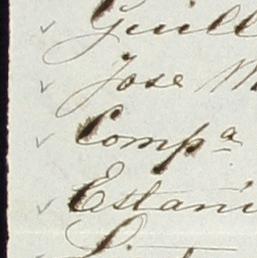 Guill
Jose M
Compª
Estani